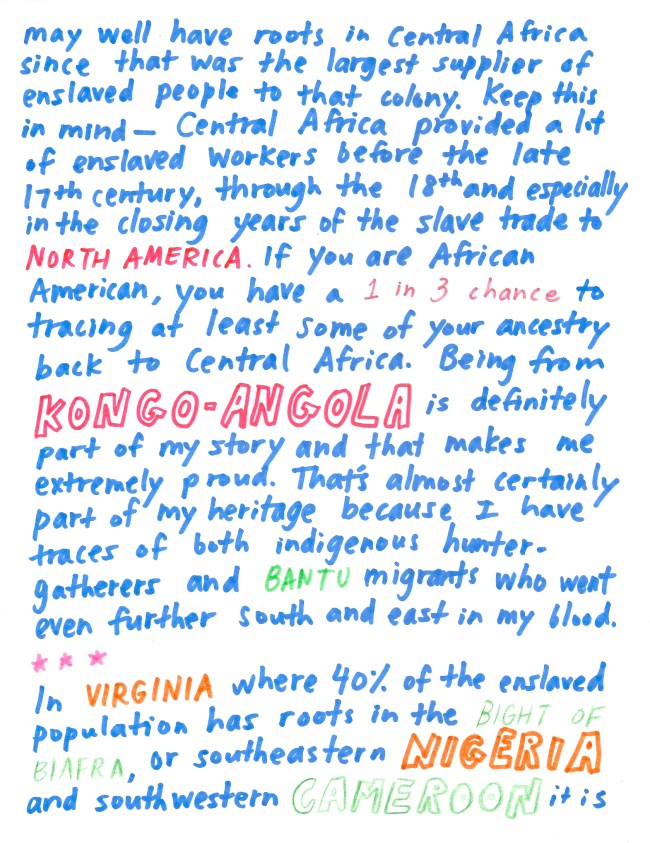 may well have roots in Central Africa
since that was the largest supplier of
enslaved people to that colony. Keep this
in mind— Central Africa provided a lot
of enslaved workers before the late
17th century, through the 18th and especially
in the closing years of the slave trade to
NORTH AMERICA. If you are African
American, you have a 1 in 3 chance to
tracing at least some of your ancestry
back to Central Africa. Being from
KONGO-ANGOLA is definitely
part of my story and that makes me
extremely proud. That's almost certainly
part of my heritage because I have
traces of both indigenous hunter-
gatherers and BANTU migrants who went
even further south and east in my blood.
***
In VIRGINIA where 40% of the enslaved
population has roots in the BIGHT OF
BIAFRA, or southeastern NIGERIA
and southwestern CAMEROON it is